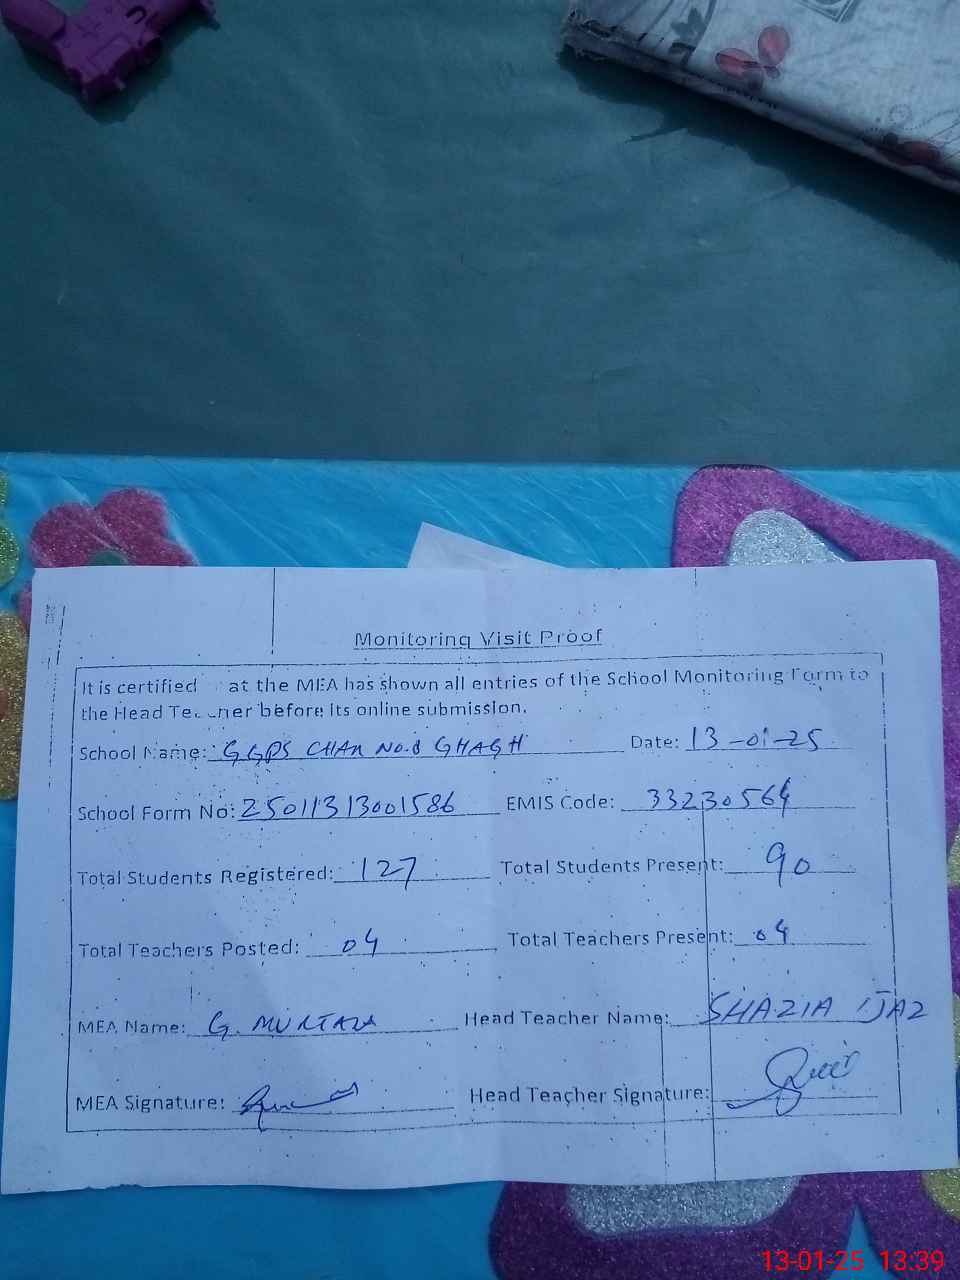 Monitoring Visit Proof
It is certified at the MEA has shown all entries of the School Monitoring Form to
the Head Teacher before its online submission.
School Name: GGPS CHAK NO.8 GHAGH Date: 13-01-25
School Form No: 25011313001586 EMIS Code: 33230564
Total Students Registered: 127 Total Students Present: 90
Total Teachers Posted: 04 Total Teachers Present: 04
MEA Name: G. MURTAZA Head Teacher Name: SHAZIA IJAZ
MEA Signature: Head Teacher Signature:
13-01-25 13:39